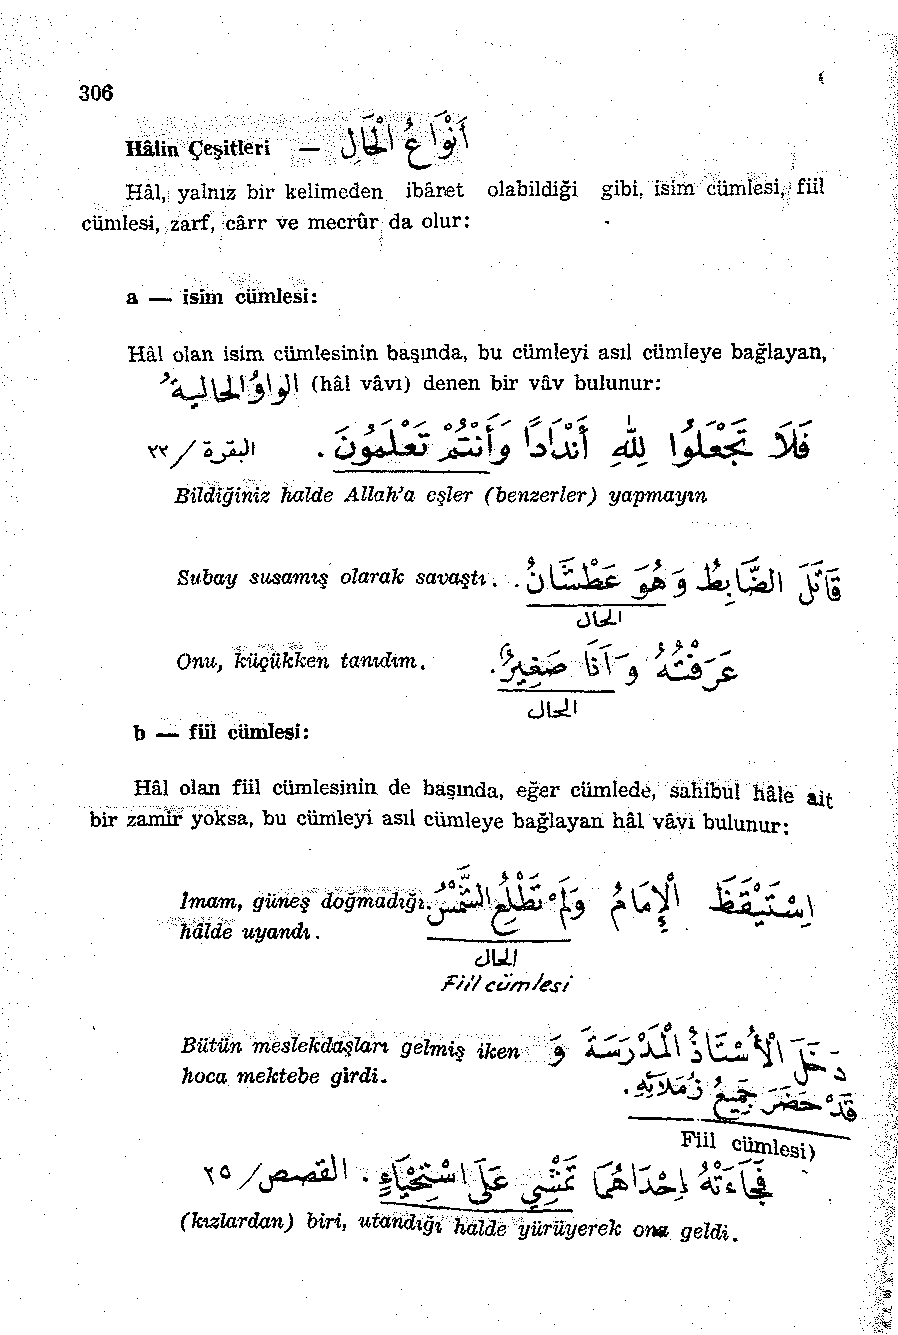 306
Hâlin Çeşitleri — أَنْوَاعُ الْحَالِ
Hâl, yalnız bir kelimeden ibâret olabildiği gibi, isim cümlesi, fiil
cümlesi, zarf, cârr ve mecrûr da olur:
a — isim cümlesi:
Hâl olan isim cümlesinin başında, bu cümleyi asıl cümleye bağlayan,
الواوُ الحاليةُ (hâl vâvı) denen bir vâv bulunur:
فَلَا تَجْعَلُوا لِلّٰهِ أَنْدَادًا وَأَنْتُمْ تَعْلَمُونَ . البقرة / ٢٢
Bildiğiniz halde Allah'a eşler (benzerler) yapmayın
Subay susamış olarak savaştı. قَاتَلَ الضَّابِطُ وَ هُوَ عَطْشَانُ .
الحال
Onu, küçükken tanıdım. عَرَفْتُهُ وَ أَنَا صَغِيرٌ .
الحال
b — fiil cümlesi:
Hâl olan fiil cümlesinin de başında, eğer cümlede, sahibul hâle ait
bir zamir yoksa, bu cümleyi asıl cümleye bağlayan hâl vâvı bulunur:
İmam, güneş doğmadığı اِسْتَيْقَظَ الْإِمَامُ وَلَمْ تَطْلُعِ الشَّمْسُ .
hâlde uyandı.
الحال
Fiil cümlesi
Bütün meslekdaşları gelmiş iken دَخَلَ الْأُسْتَاذُ الْمَدْرَسَةَ وَ
hoca mektebe girdi. قَدْ حَضَرَ جَمِيعُ زُمَلَائِهِ .
Fiil cümlesi)
فَجَاءَتْهُ إِحْدَاهُمَا تَمْشِي عَلَى اسْتِحْيَاءٍ . القصص / ٢٥
(kızlardan) biri, utandığı halde yürüyerek ona geldi.